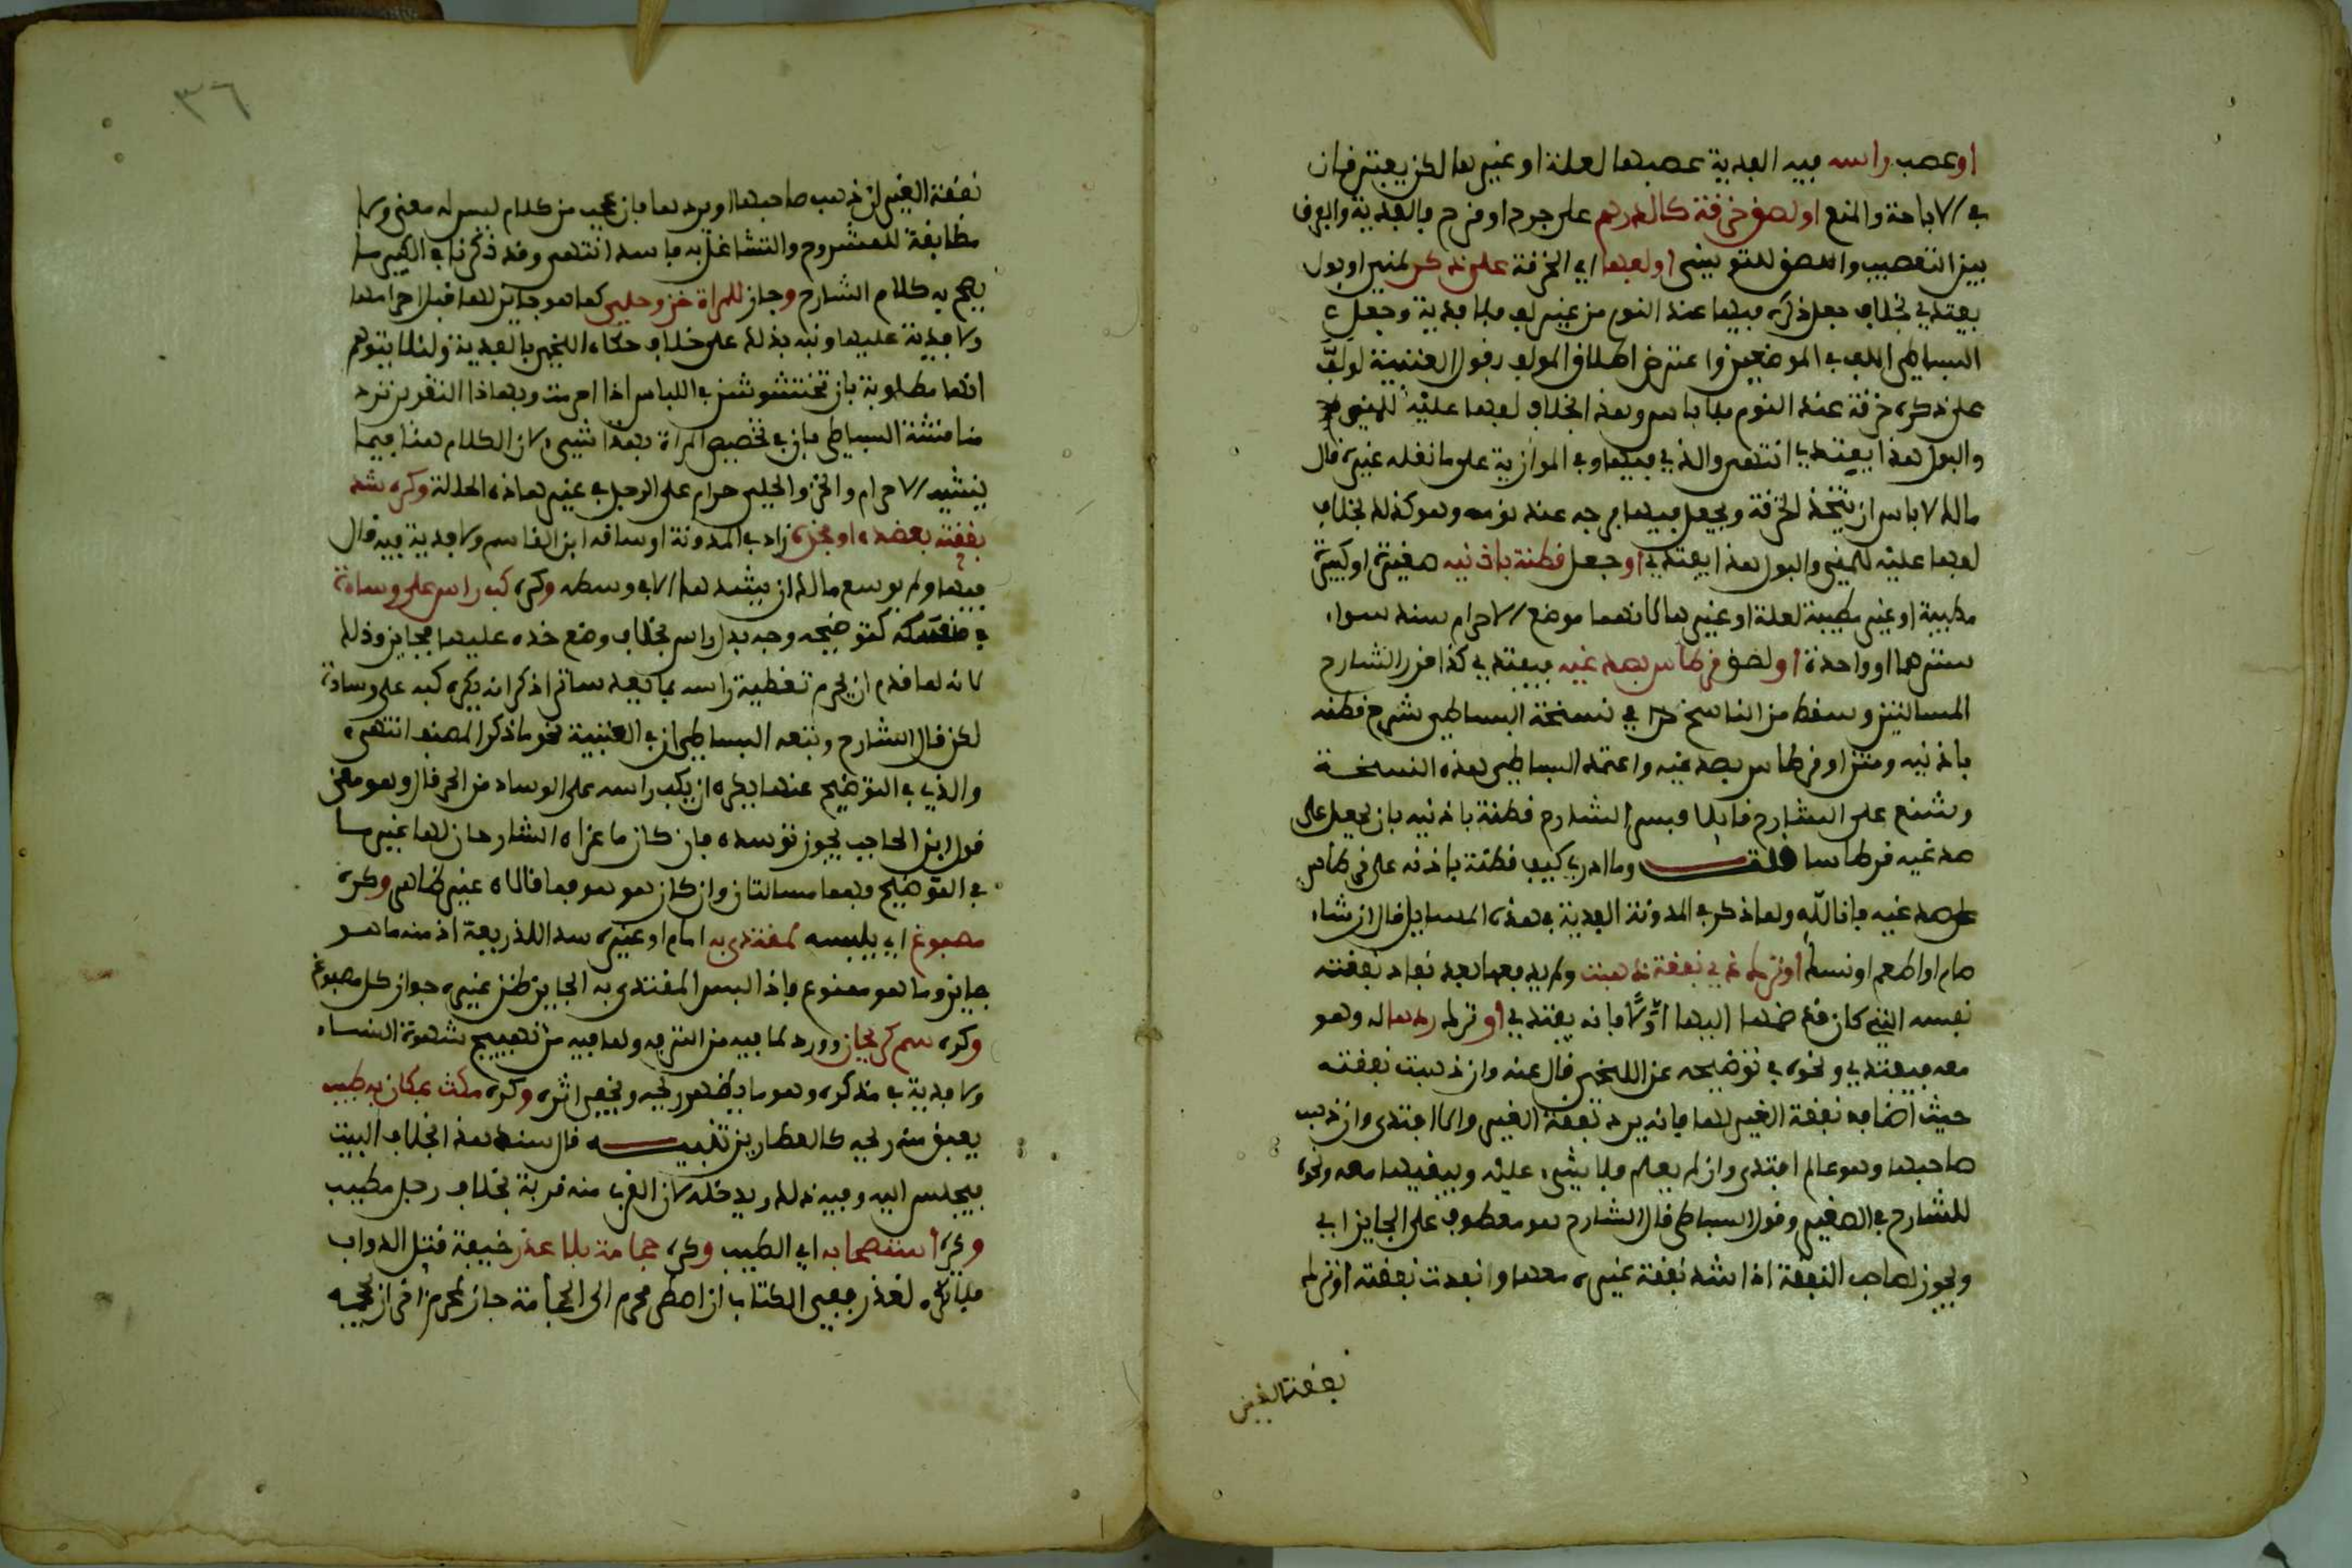 او عصب راسه ففيه الفدية عصبها لعلة او غيرها لكن يفترقان
في الاباحة والمنع او لصق خرقة كالدرهم على جرح او قرح فالفدية والفرق
بين التعصيب واللصق للتونسي او لفها اي الخرقة على ذكر لمني او بول
يفتدي بخلاف جعل ذكره فيها عند النوم من غير لف فلا فدية وجعل
البساطي اللف في الموضعين واعترض اطلاق المولف بقول العتبية لو لف
على ذكره خرقة عند النوم فلا باس وهذا بخلاف لفها عليه للمني
والبول هذا يفتدي انتهى والذي فيها وفي الموازية على ما نقله غيره قال
مالك لا باس ان يتخذ الخرقة ويجعل فيها فرجه عند نومه وهو كذلك بخلاف
لفها عليه للمني والبول هذا يفتدي او جعل قطنة باذنيه صغيرة او كبيرة
مطيبة او غير مطيبة لعلة او غيرها لانهما موضع الاحرام سند سواء
سترهما او واحدة او لصق قرطاس بصدغيه فيفتدي كذا قرر الشارح
المسالتين وسقط من الناسخ في نسخة البساطي شرح قطنه
باذنيه ومتن او قرطاس بصدغيه واعتمد البساطي هذه النسخة
وشنع على الشارح قايلا وفسر الشارح قطنة باذنيه بان يجعل على
صدغيه قرطاسا قلت وما ادري كيف قطنة باذنه على قرطاس
على صدغيه فانا لله ولما ذكر في المدونة الفدية في هذه المسايل قال ان شاء
صام او اطعم او نسك او ترك ذي نفقة ذهبت ولم يدفعها بعد نفاد نفقته
نفسه التي كان ضمها اليها اولا فانه يفتدي او ترك ردها له وهو
معه فيفتدي ونحوه في توضيحه عن اللخمي قال عنه وان ذهبت نفقته
حيث اضافه نفقة الغير لها فانه يرد نفقة الغير والا افتدى وان ذهب
صاحبها وهو عالم افتدى وان لم يعلم فلا شيء عليه ويبقيها معه ونحوه
للشارح في الصغير وقول البساطي قال الشارح هو معطوف على الجايز اي
ويجوز لصاحب النفقة اذا شد نفقة غيره معها ونفدت نفقته او ترك
نفقة الغير
٣٦
نفقة الغير ان ذهب صاحبها او يردها فان عجب من كلام ليس له معنى ولا
مطابقة للمشروح والتشاغل به فاسد انتهى وقد ذكرنا في الكبير ما
يصح به كلام الشارح وجاز للمراة خز وحلي كما هو جايز لها قبل احرامها
ولا فدية عليها ونبه بذلك على خلاف حكاه اللخمي بالفدية ولئلا يتوهم
انها مطلوبة بان تخشوشن في اللباس اذا احرمت وبهذا التقرير ترد
مناقشة البساطي فان في تخصيص المراة بهذا شيء لان الكلام هنا فيما
ينشيه الاحرام والخز والحلي حرام على الرجل في غير هذه الحالة وكره شد
نفقته بعضده او فخذه زاد في المدونة او ساقه ابن القاسم ولا فدية فيه قال
فيها ولم يوسع مالك ان يشدها الا في وسطه وكره كب راس على وسادة
في منسكه كتوضيحه وجه بدل راس بخلاف وضع خده عليها فجايز وذلك
لانه لما قدم ان يحرم تغطية راسه بما يعد ساترا ذكر انه يكره كبه على وسادة
لكن قال الشارح وتبعه البساطي ان في العتبية نحو ما ذكر المصنف انتهى
والذي في التوضيح عنها يكره ان يكب راسه على الوساد من الحر قال وهو معنى
قول ابن الحاجب يجوز توسده فان كان ما عزاه الشارحان لها غير ما
في التوضيح فهما مسالتان وان كان هو هو فما قالاه غير ظاهر وكره
مصبوغ اي يلبسه لمقتدى به امام او غيره سدا للذريعة اذ منه ما هو
جايز وما هو ممنوع فاذا لبس المقتدى به الجايز ظن غيره جواز كل مصبوغ
وكره شم كريحان وورد لما فيه من الترفه ولما فيه من تهييج شهوة النساء
ولا فدية في مذكره وهو ما يظهر ريحه ويخفى اثره وكره مكث بمكان به طيب
يعبق منه ريحه كالعطارين تنبيه قال سند هذا بخلاف البيت
فيجلس اليه وفيه ذلك ويدخله لان القرب منه قربة بخلاف رجل مطيب
وكره استصحابه اي الطيب وكره حجامة بلا عذر خيفة قتل الدواب
فلا يكره لعذر ففي الكتاب ان اضطر محرم الى الحجامة جاز لمحرم اخر ان يحجمه